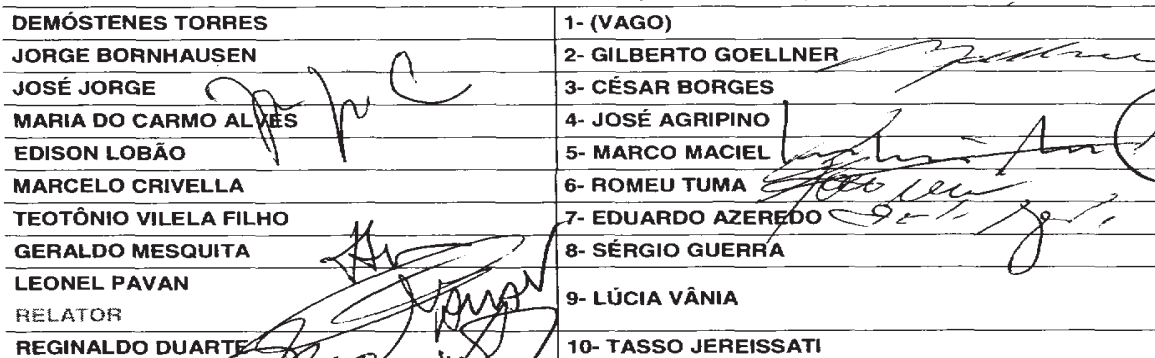 DEMÓSTENES TORRES 1- (VAGO)
JORGE BORNHAUSEN 2- GILBERTO GOELLNER
JOSÉ JORGE 3- CÉSAR BORGES
MARIA DO CARMO ALVES 4- JOSÉ AGRIPINO
EDISON LOBÃO 5- MARCO MACIEL
MARCELO CRIVELLA 6- ROMEU TUMA
TEOTÔNIO VILELA FILHO 7- EDUARDO AZEREDO
GERALDO MESQUITA 8- SÉRGIO GUERRA
LEONEL PAVAN
RELATOR 9- LÚCIA VÂNIA
REGINALDO DUARTE 10- TASSO JEREISSATI